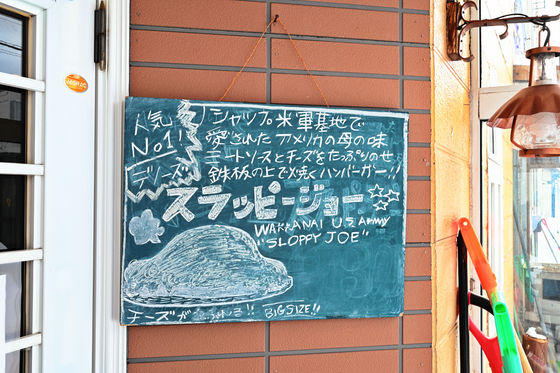 人気
No1!
デソーズ
シャップ米軍基地で
愛されたアメリカの母の味
ミートソースとチーズをたっぷりのせ
鉄板の上で焼くハンバーガー!!
スラッピージョー
WAKKANAI U.S Army
"SLOPPY JOE"
チーズが
BIG SIZE!!